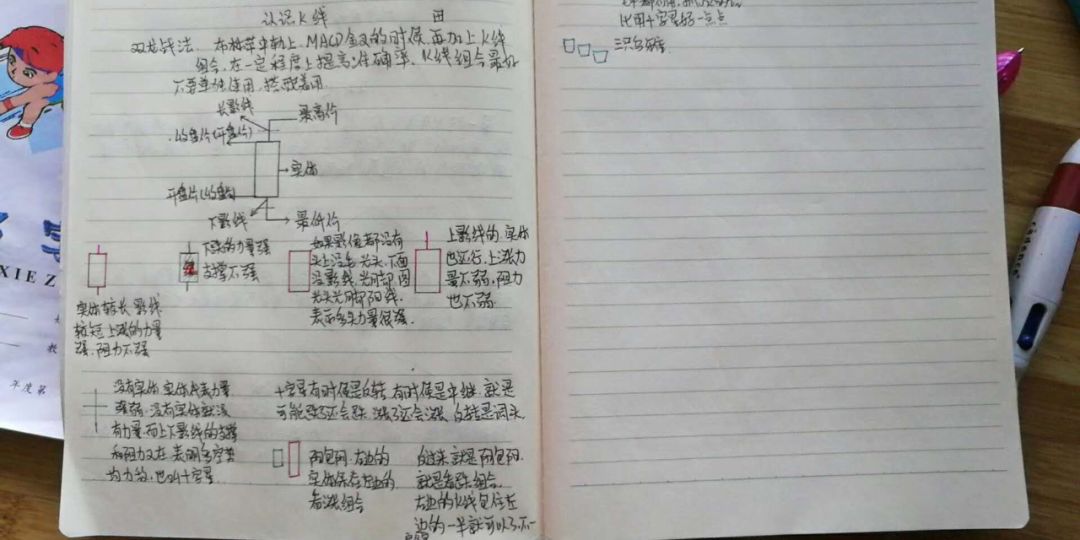 认识K线
双龙战法,在标草中轨上,MACD金叉的时候,再加上K线
组合,在一定程度上提高准确率,K线组合最好
不要单独使用,搭配着用
长影线
最高价
收盘价(开盘价)
实体
开盘价(收盘价)
下影线
最低价
实体较长影线
较短上涨的力量
强,阻力不强
绿
下跌的力量强
支撑不强
如果影像都没有
头上没毛光头,下面
没影线,光脚即因
光头光脚阳线,
表示多头力量很强.
上影线的,实体
也还行,上涨力
量不弱,阻力
也不弱.
没有实体,实体代表力量
强弱,没有实体就没
有力量,而上下影线的支撑
和阻力又在,表明多空势
均力的,也叫十字星
十字星有时候是反转,有时候是中继,就是
可能跌了还会跌,涨了还会涨,反转是词头
阳包阴,右边的
看涨组合
反过来就是阴包阳,
就是看跌组合.
右边的K线包住左
边的一半就可以了,不一
比用十字星好一点点
三只乌鸦
XIE Z
年度第